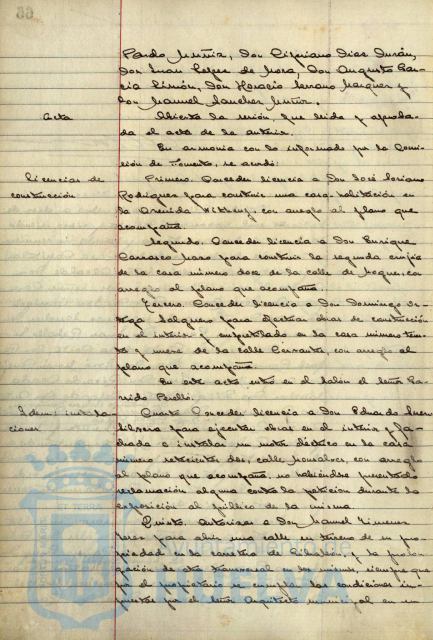 Pardo Muñiz, Don Cipriano Dias Durán,
Don Juan López de Mora, Don Augusto Gar-
cia Limón, Don Horacio Serrano Marquez y
Don Manuel Sanchez Muñoz.
Acta
Abierta la sesión, fue leida y aproba-
da el acta de la anterior.
En armonia con lo informado por la Comi-
sión de Fomento, se acordó:
Licencias de
construcción
Primero. Conceder licencia a Don José Soriano
Rodriguez para construir una casa-habitación en
la Avenida con arreglo al plano que
acompaña.
Segundo. Conceder licencia a Don Enrique
Carrasco Haro para construir la segunda crujia
de la casa número doce de la calle de Moguer, con
arreglo al plano que acompaña.
Tercero. Conceder licencia a Don Domingo Or-
tega Salguero para efectuar obras de construcción
en el interior y en la casa número trein-
ta y nueve de la calle Cervantes, con arreglo al
plano que acompaña.
En este acto entró en el salón el señor Ga-
rrido Perelló.
Idem: instala-
ciones
Cuarto. Conceder licencia a Don Eduardo
para ejecutar obras en el interior y fa-
chada e instalar un motor eléctrico en la casa
número setecientos dos, calle con arreglo
al plano que acompaña, no habiéndose presentado
reclamación alguna contra la petición durante la
exposición al público de la misma.
Quinto. Autorizar a Don Manuel Jimenez
para abrir una calle en terreno de su pro-
piedad en la carretera de Gibraleón, y la prolon-
gación de otra transversal en los mismos, siempre que
por el propietario se cumplan las condiciones im-
puestas por el señor Arquitecto municipal en su
HUELVA